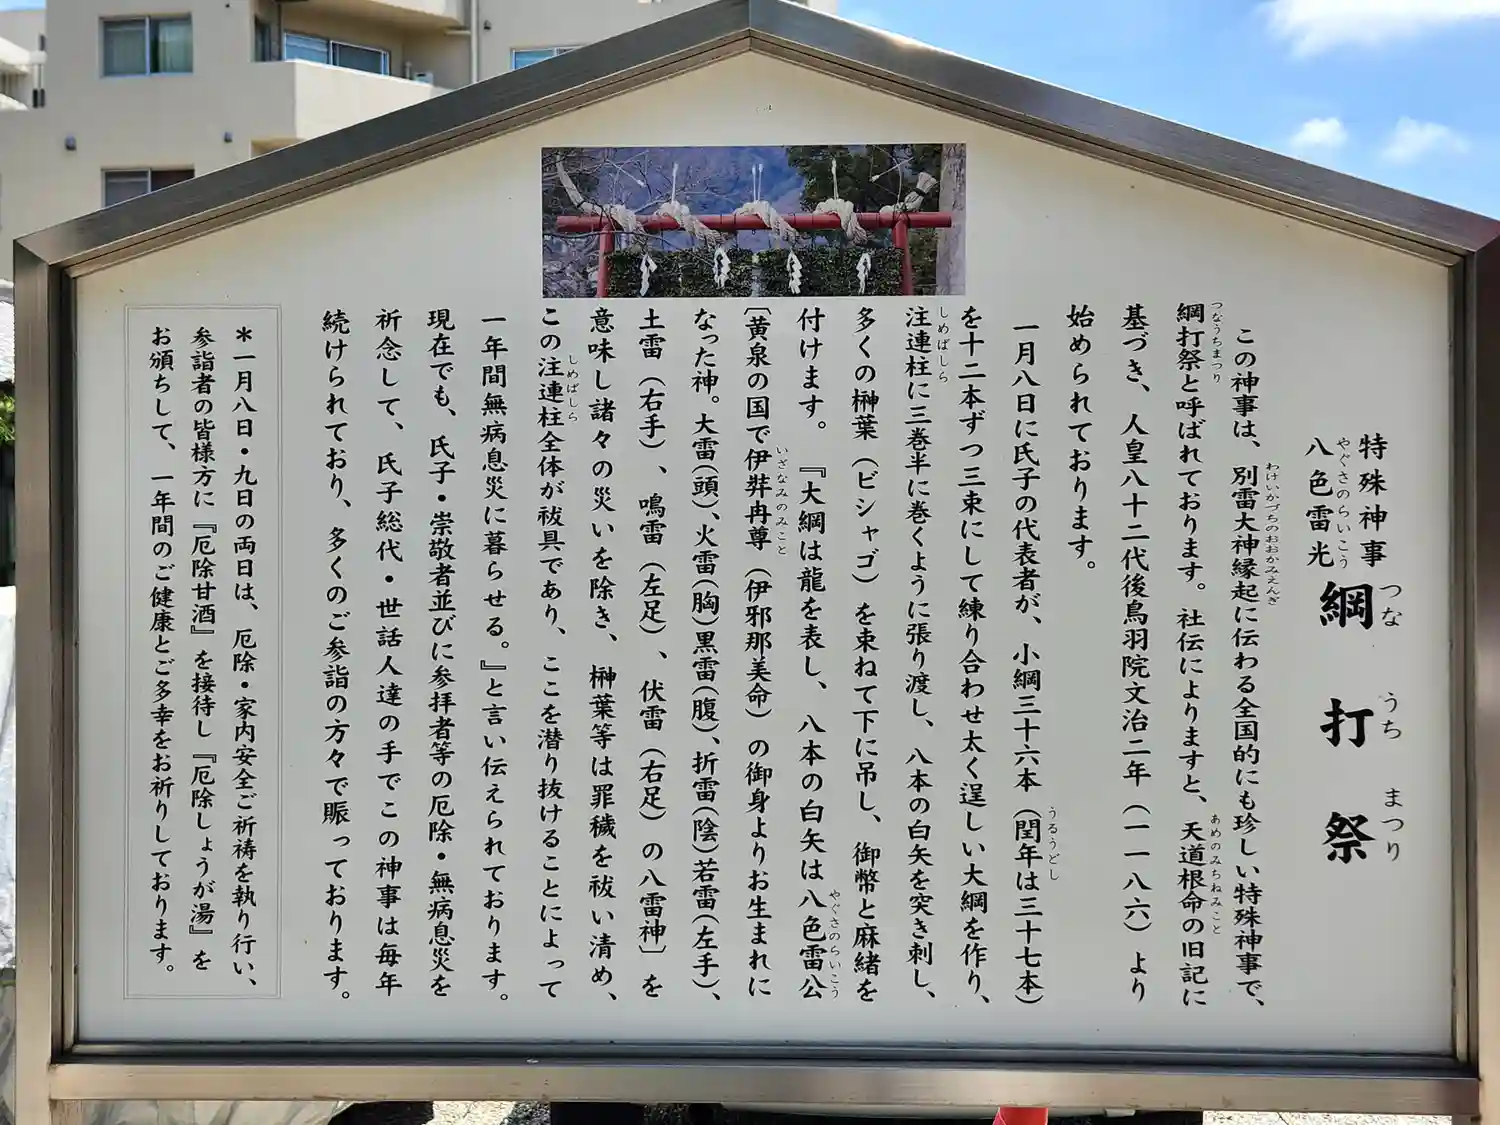 特殊神事
八色雷光
やぐさのらいこう
綱打祭
つな うち まつり
この神事は、別雷大神縁起に伝わる全国的にも珍しい特殊神事で、
わけいかづちのおおかみえんぎ
綱打祭と呼ばれております。社伝によりますと、天道根命の旧記に
つなうちまつり
あめのみちねみこと
基づき、人皇八十二代後鳥羽院文治二年(一一八六)より
始められております。
一月八日に氏子の代表者が、小綱三十六本(閏年は三十七本)
うるうどし
を十二本ずつ三束にして練り合わせ太く逞しい大綱を作り、
注連柱に三巻半に巻くように張り渡し、八本の白矢を突き刺し、
しめばしら
多くの榊葉(ビシャゴ)を束ねて下に吊し、御幣と麻緒を
付けます。『大綱は龍を表し、八本の白矢は八色雷公
やぐさのらいこう
〔黄泉の国で伊弉冉尊(伊邪那美命)の御身よりお生まれに
いざなみのみこと
なった神。大雷(頭)、火雷(胸)黒雷(腹)、折雷(陰)若雷(左手)、
土雷(右手)、鳴雷(左足)、伏雷(右足)の八雷神〕を
意味し諸々の災いを除き、榊葉等は罪穢を祓い清め、
この注連柱全体が祓具であり、ここを潜り抜けることによって
しめばしら
一年間無病息災に暮らせる。』と言い伝えられております。
現在でも、氏子・崇敬者並びに参拝者等の厄除・無病息災を
祈念して、氏子総代・世話人達の手でこの神事は毎年
続けられており、多くのご参詣の方々で賑っております。
＊一月八日・九日の両日は、厄除・家内安全ご祈祷を執り行い、
参詣者の皆様方に『厄除甘酒』を接待し『厄除しょうが湯』を
お頒ちして、一年間のご健康とご多幸をお祈りしております。